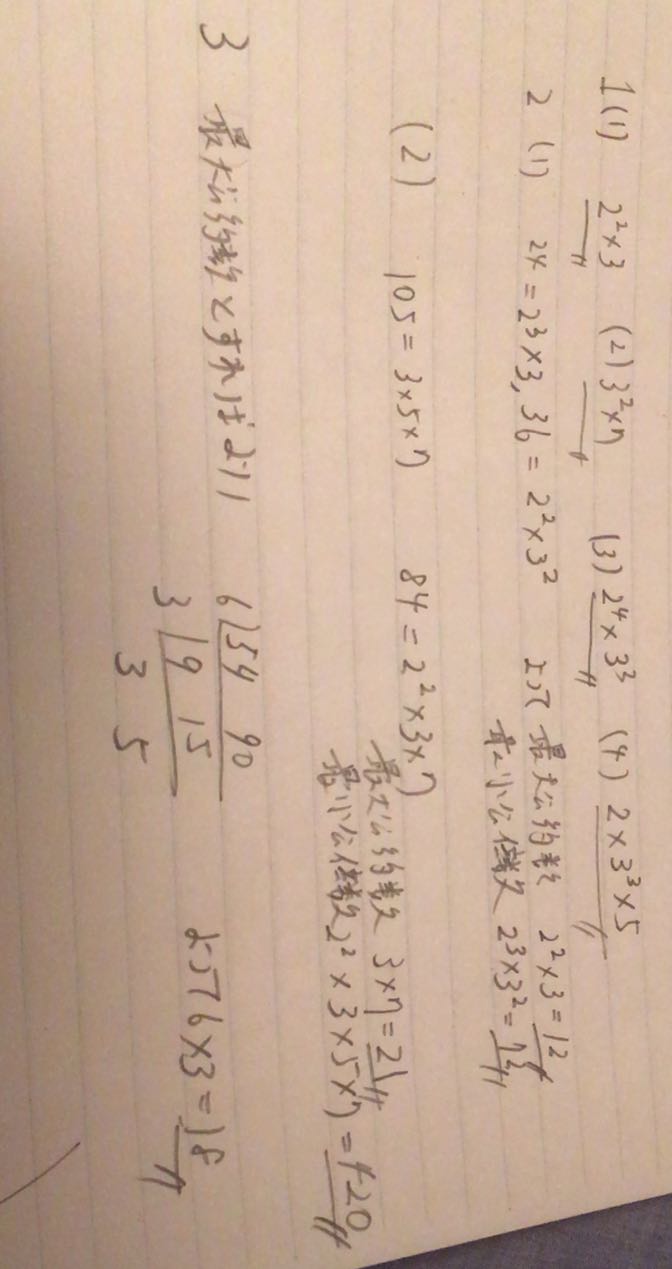 1 (1) 2²×3 (2) 3²×7 (3) 2⁴×3³ (4) 2×3³×5
2 (1) 24=2³×3, 36=2²×3² よって 最大公約数 2²×3=12
最小公倍数 2³×3²=72
(2) 105=3×5×7 84=2²×3×7
最大公約数 3×7=21
最小公倍数 2²×3×5×7=420
3 最大公約数とすればよい
6)54 90
3)9 15
3 5
よって6×3=18